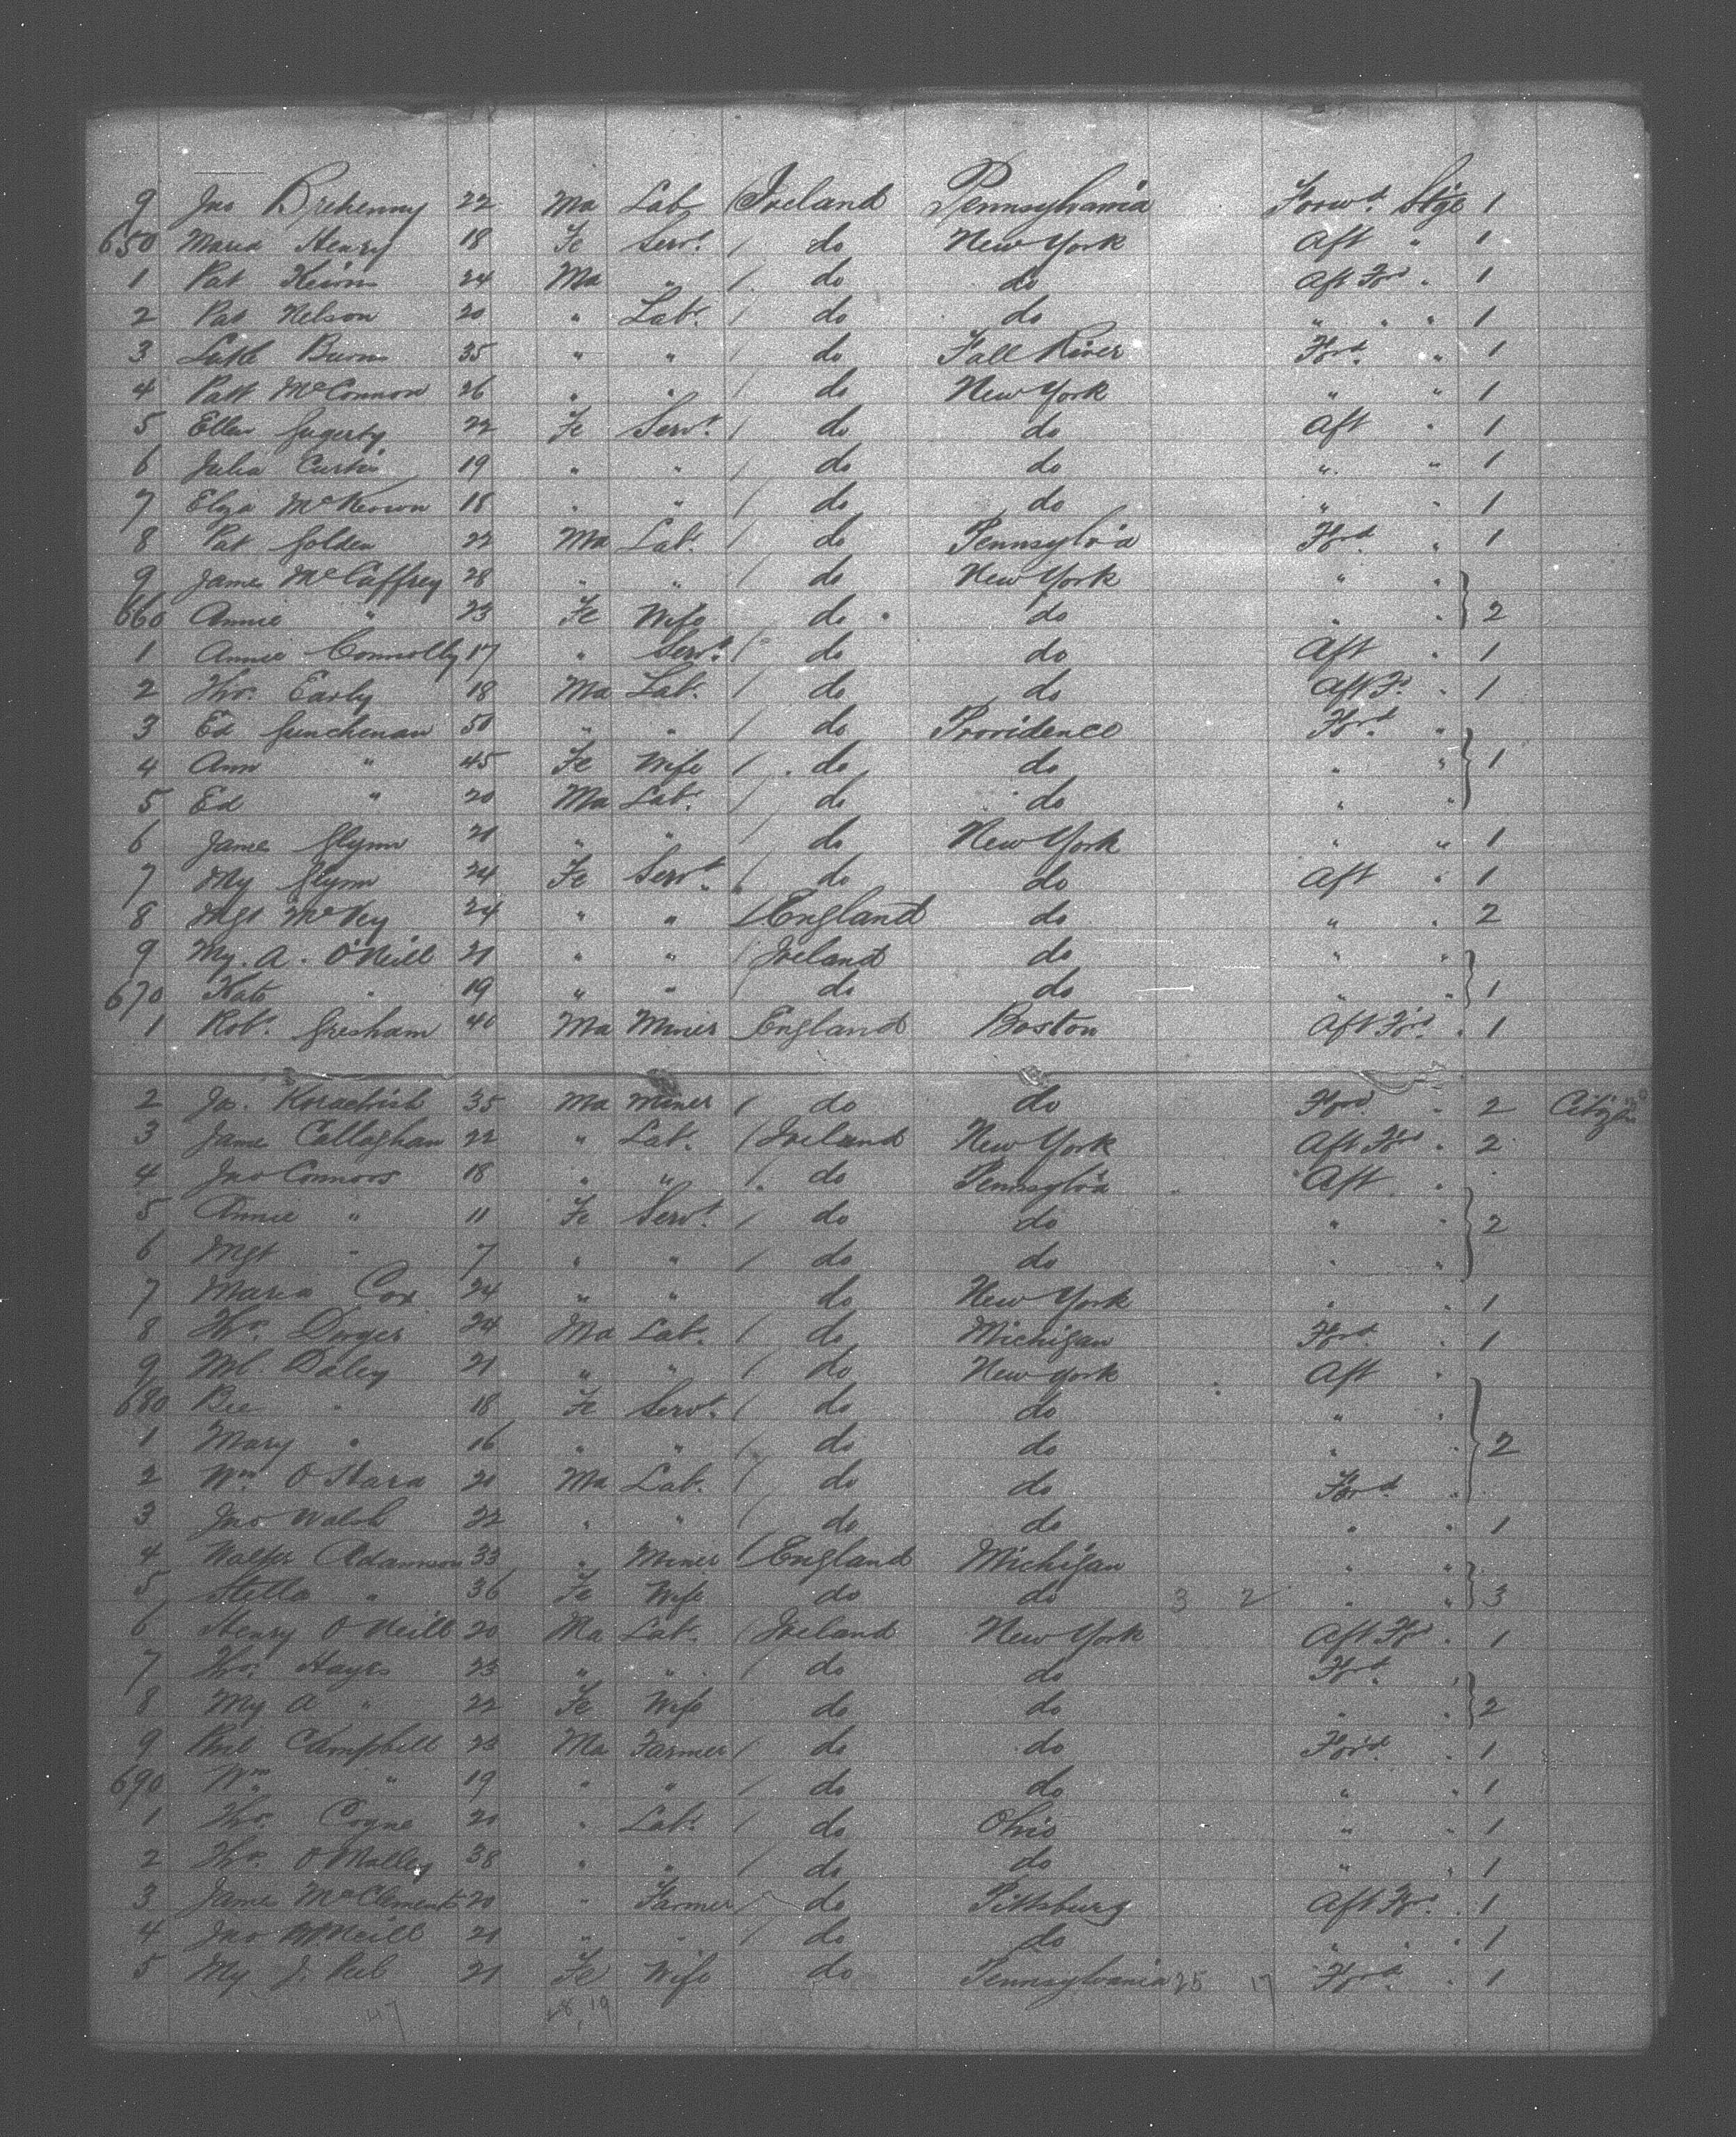 9 Jno Brehenny 22 Ma Lab / Ireland Pennsylvania Forwd. Stge 1
650 Maria Henry 18 Fe Servt. / do New York Aft " 1
1 Pat 24 Ma " / do do Aft Fwd " 1
2 Pat Nelson 20 " Labr. / do do " " " 1
3 Luke Burns 35 " " / do Fall River Fwd. " 1
4 Patt McConnon 26 " " / do New York " " 1
5 Ellen 22 Fe Servt. / do do Aft " 1
6 Julia Curtis 19 " " / do do " " 1
7 Eliza McKeown 18 " " / do do " " 1
8 Pat Golden 22 Ma Labr. / do Pennsylva Fwd. " 1
9 James McCaffrey 28 " " / do New York " "
660 Annie " 23 Fe Wife do do " " 2
1 Annie Connolly 17 " Servt. / do do Aft " 1
2 Thos. Early 18 Ma Labr. / do do Aft Fd. " 1
3 Ed 50 " " / do Providence Fwd. "
4 Ann " 45 Fe Wife / do do " " 1
5 Ed " 20 Ma Labr. / do do " "
6 James Glynn 21 " " / do New York " " 1
7 My Glynn 24 Fe Servt. / do do Aft " 1
8 Mgt McVey 24 " " / England do " " 2
9 My. A. O'Neill 21 " " / Ireland do " "
670 Kate " 19 " " / do do " " 1
1 Robt. Gresham 40 Ma Miner England Boston Aft Fwd. " 1
2 35 Ma Miner / do do Fwd. " 2 Citizen
3 James Callaghan 22 " Labr. / Ireland New York Aft Fwd " 2
4 Jno Connors 18 " " / do Pennsylva Aft "
5 Annie " 11 Fe Servt. / do do " " 2
6 Mgt " 7 " " / do do " "
7 Maria Cox 24 " " do New York " " 1
8 Thos. 24 Ma Labr. / do Michigan Fwd. " 1
9 Ml. Daley 21 " " / do New York Aft "
680 Bee " 18 Fe Servt. / do do " "
1 Mary " 16 " " / do do " " 2
2 Wm. O'Hara 20 Ma Labr. / do do Forwd. "
3 Jno Walsh 22 " " / do do " " 1
4 Walter Adamson 33 " Miner / England Michigan " "
5 Stella " 36 Fe Wife do do 3 2 " " 3
6 Henry O'Neill 20 Ma Labr. / Ireland New York Aft Fwd " 1
7 Thos. Hayes 23 " " / do do Fwd. "
8 My A " 22 Fe Wife do do " " 2
9 Campbell 23 Ma Farmer / do do Forwd. " 1
690 Wm " 19 " " / do do " 1
1 Thos. Coyne 20 " Labr. / do Ohio " " 1
2 Thos. O'Malley 38 " " / do do " " 1
3 James McClements 20 " Farmer / do Pittsburg Aft Fwd. " 1
4 Jno 21 " " / do do " " " 1
5 My J. Peel 21 Fe Wife do Pennsylvania 25 17 Fwd. " 1
47 28, 19